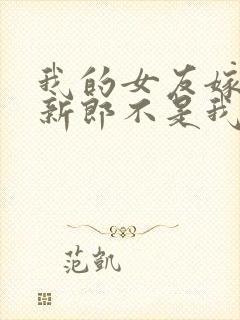 我的女友嫁
新郎不是我
范凯